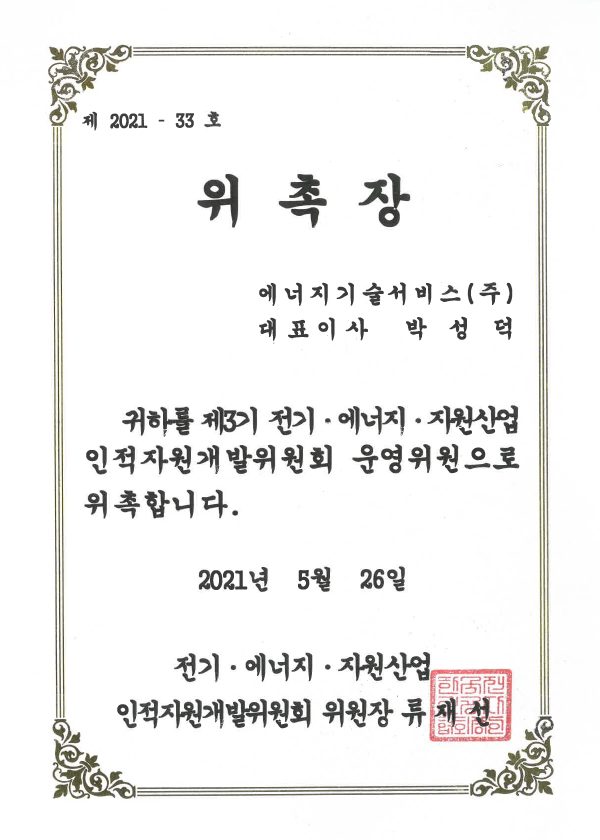 제 2021 - 33 호
위 촉 장
에너지기술서비스(주)
대표이사 박 성 덕
귀하를 제3기 전기·에너지·자원산업
인적자원개발위원회 운영위원으로
위촉합니다.
2021년 5월 26일
전기·에너지·자원산업
인적자원개발위원회 위원장 류재선